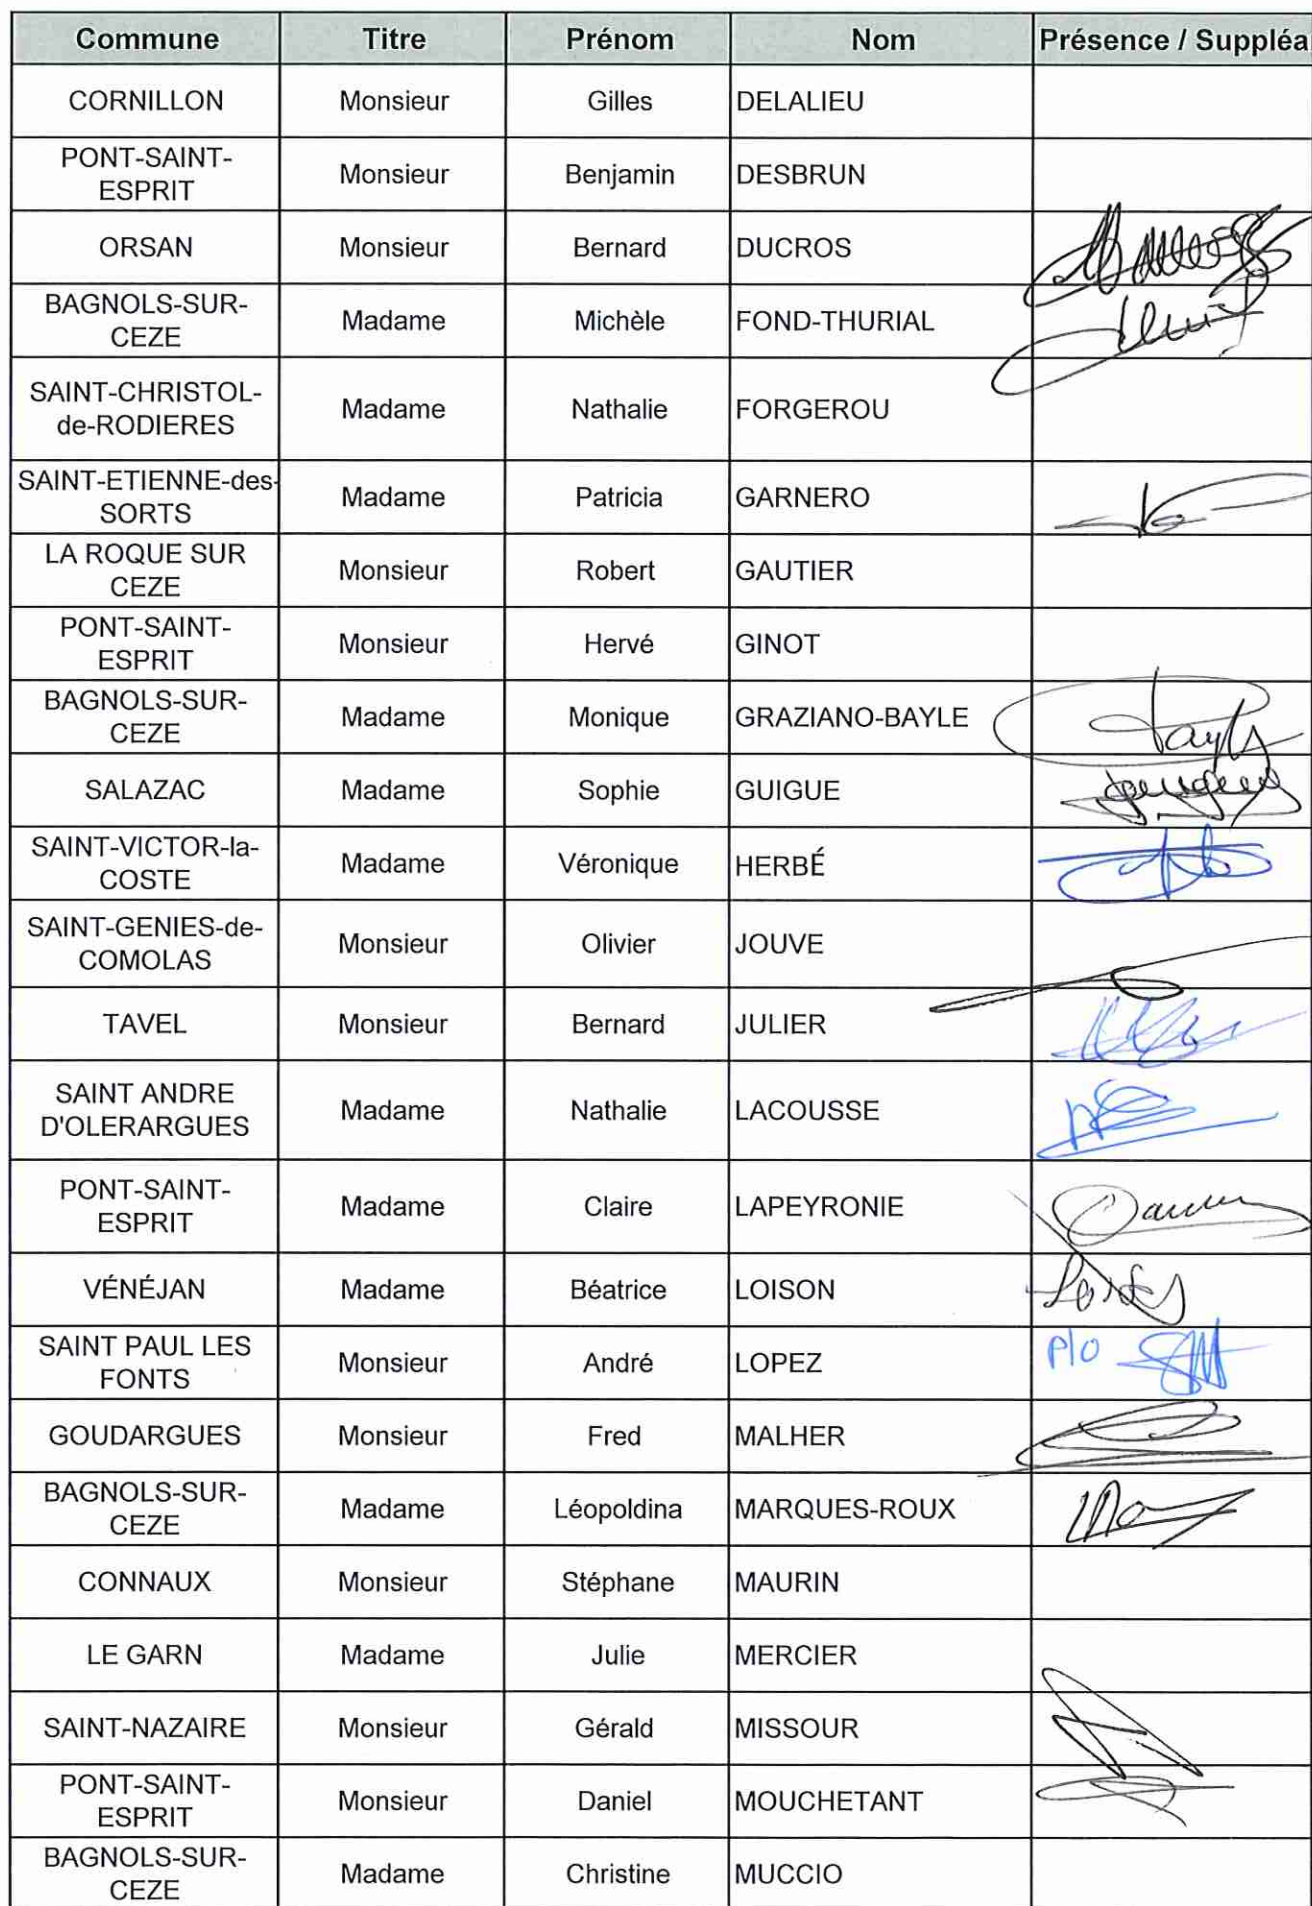 Commune Titre Prénom Nom Présence / Suppléa
CORNILLON Monsieur Gilles DELALIEU
PONT-SAINT-
ESPRIT Monsieur Benjamin DESBRUN
ORSAN Monsieur Bernard DUCROS
BAGNOLS-SUR-
CEZE Madame Michèle FOND-THURIAL
SAINT-CHRISTOL-
de-RODIERES Madame Nathalie FORGEROU
SAINT-ETIENNE-des-
SORTS Madame Patricia GARNERO
LA ROQUE SUR
CEZE Monsieur Robert GAUTIER
PONT-SAINT-
ESPRIT Monsieur Hervé GINOT
BAGNOLS-SUR-
CEZE Madame Monique GRAZIANO-BAYLE
SALAZAC Madame Sophie GUIGUE
SAINT-VICTOR-la-
COSTE Madame Véronique HERBÉ
SAINT-GENIES-de-
COMOLAS Monsieur Olivier JOUVE
TAVEL Monsieur Bernard JULIER
SAINT ANDRE
D'OLERARGUES Madame Nathalie LACOUSSE
PONT-SAINT-
ESPRIT Madame Claire LAPEYRONIE
VÉNÉJAN Madame Béatrice LOISON
SAINT PAUL LES
FONTS Monsieur André LOPEZ P/O
GOUDARGUES Monsieur Fred MALHER
BAGNOLS-SUR-
CEZE Madame Léopoldina MARQUES-ROUX
CONNAUX Monsieur Stéphane MAURIN
LE GARN Madame Julie MERCIER
SAINT-NAZAIRE Monsieur Gérald MISSOUR
PONT-SAINT-
ESPRIT Monsieur Daniel MOUCHETANT
BAGNOLS-SUR-
CEZE Madame Christine MUCCIO